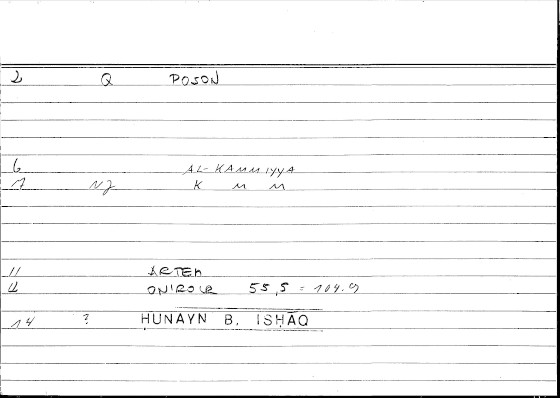 2 Q POSON
6 AL-KAMMIYYA
7 NJ K M M
11 ARTEM
12 ONIROCR 55,5 = 104.9
14 ? HUNAYN B. ISḤĀQ